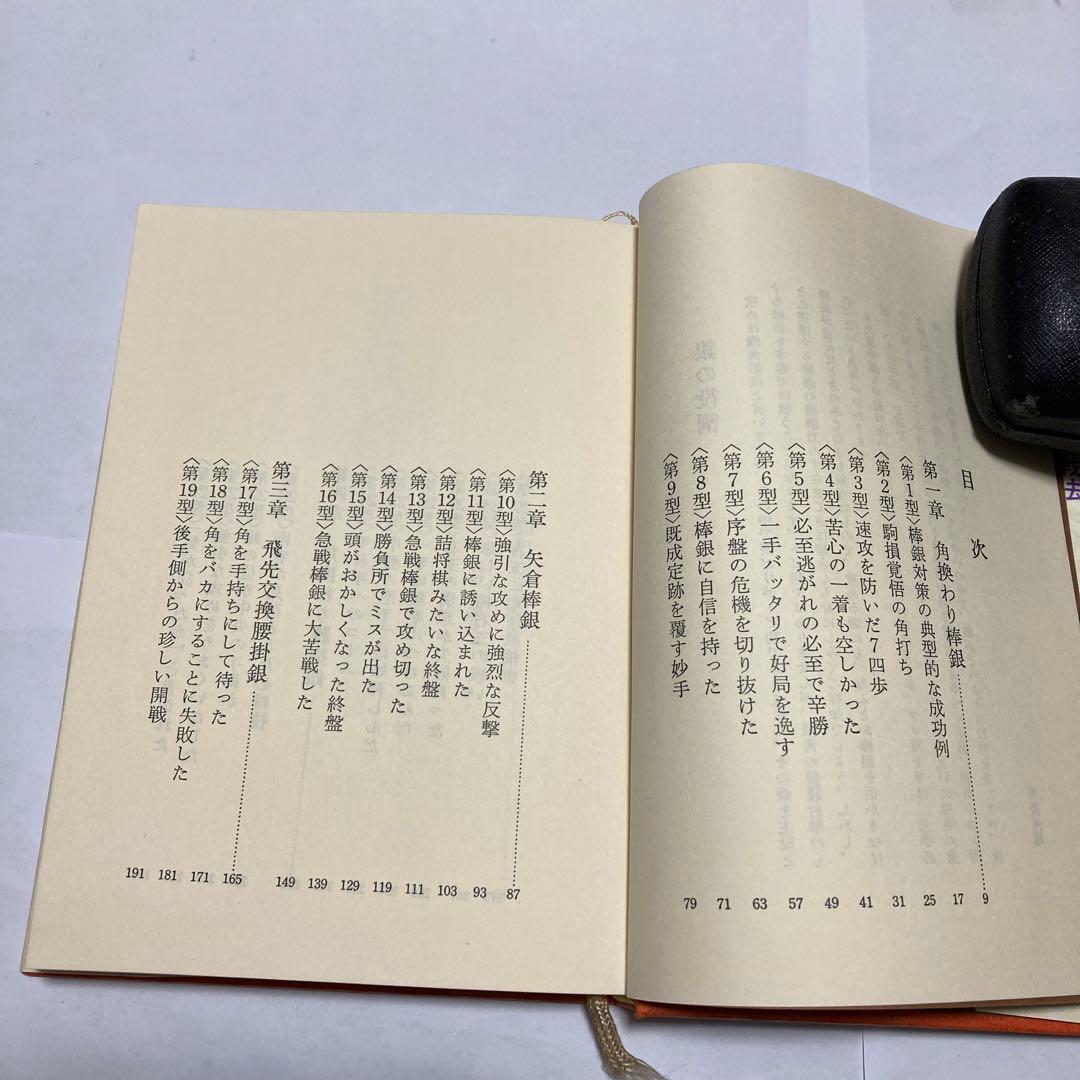 目次
第一章 角換わり棒銀……9
〈第1型〉棒銀対策の典型的な成功例 17
〈第2型〉駒損覚悟の角打ち 25
〈第3型〉速攻を防いだ7四歩 31
〈第4型〉苦心の一着も空しかった 41
〈第5型〉必至逃がれの必至で辛勝 49
〈第6型〉一手バッタリで好局を逸す 57
〈第7型〉序盤の危機を切り抜けた 63
〈第8型〉棒銀に自信を持った 71
〈第9型〉既成定跡を覆す妙手 79
第二章 矢倉棒銀……87
〈第10型〉強引な攻めに強烈な反撃 93
〈第11型〉棒銀に誘い込まれた 103
〈第12型〉詰将棋みたいな終盤 111
〈第13型〉急戦棒銀で攻め切った 119
〈第14型〉勝負所でミスが出た 129
〈第15型〉頭がおかしくなった終盤 139
〈第16型〉急戦棒銀に大苦戦した 149
第三章 飛先交換腰掛銀……165
〈第17型〉角を手持ちにして待った 171
〈第18型〉角をバカにすることに失敗した 181
〈第19型〉後手側からの珍しい開戦 191